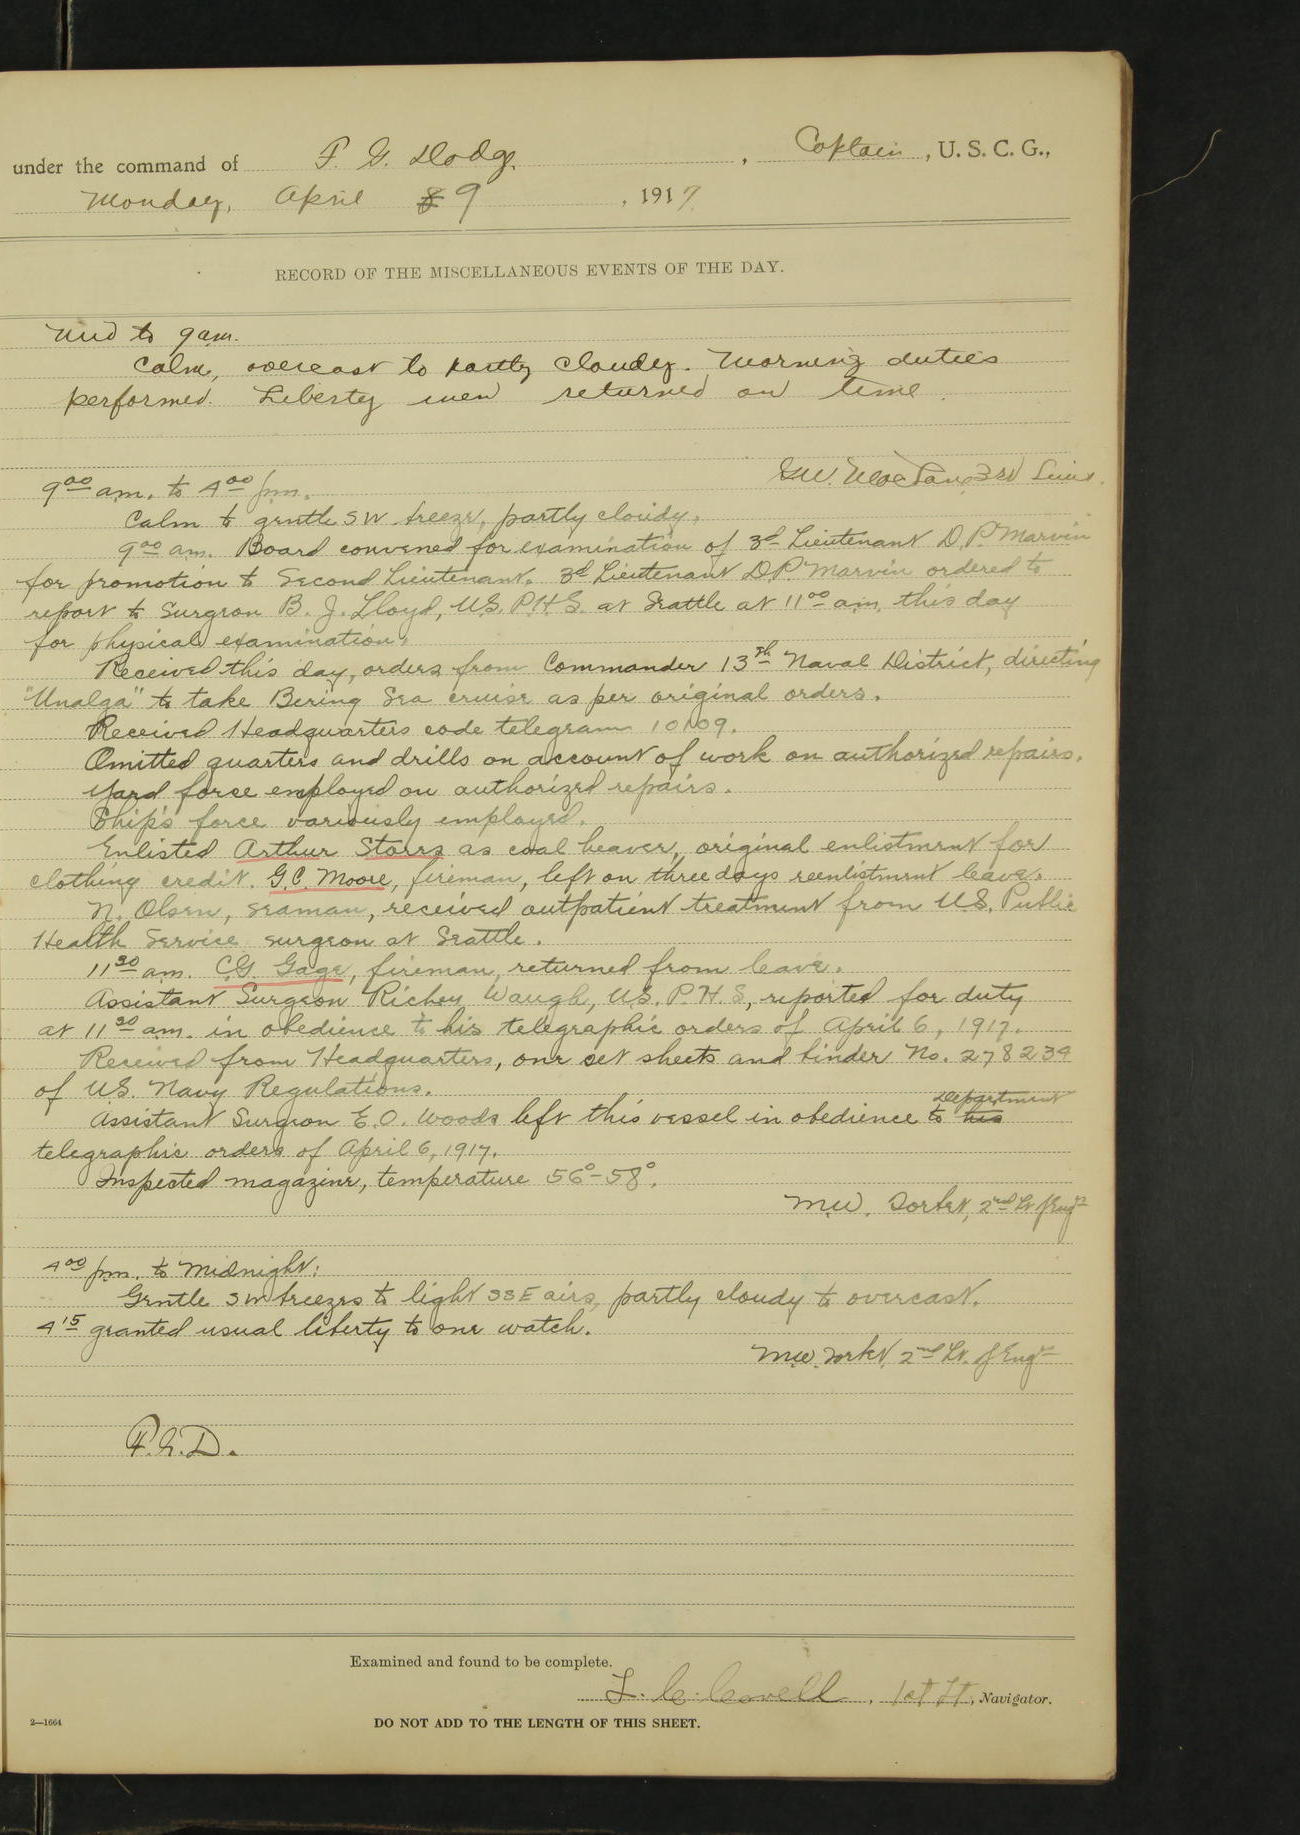 under the command of F. G. Dodge, Captain, U. S. C. G.,
Monday, April 8 9, 1917
RECORD OF THE MISCELLANEOUS EVENTS OF THE DAY.
Mid to 9 am.
Calm, overcast to partly cloudy. Morning duties
performed. Liberty men returned on time.
G.W. 3rd Lieut.
9 00 am. to 4 00 pm.
Calm to gentle SW breeze, partly cloudy.
9 00 am. Board convened for examination of 3d Lieutenant D.P. Marvin
for promotion to Second Lieutenant. 3d Lieutenant D.P. Marvin ordered to
report to Surgeon B. J. Lloyd, U.S. P.H.S. at Seattle at 11 00 am. this day
for physical examination.
Received this day, orders from Commander 13th Naval District, directing
"Unalga" to take Bering Sea cruise as per original orders.
Received Headquarters code telegram 10109.
Omitted quarters and drills on account of work on authorized repairs.
Yard force employed on authorized repairs.
Ship's force variously employed.
Enlisted Arthur as coal heaver, original enlistment for
clothing credit. G.C. Moore, fireman, left on three days reenlistment leave.
N. Olsen, seaman, received outpatient treatment from U.S. Public
Health Service surgeon at Seattle.
11 30 am. C.G. Gage, fireman, returned from leave.
Assistant Surgeon Richey Waugh, U.S. P.H.S., reported for duty
at 11 30 am. in obedience to his telegraphic orders of April 6, 1917.
Received from Headquarters, one set sheets and binder No. 278239
of U.S. Navy Regulations.
Department
Assistant Surgeon E.O. Woods left this vessel in obedience to his
telegraphic orders of April 6, 1917.
Inspected magazine, temperature 56°-58°.
M.W. Torbet, 2nd Lt. of Engrs
4 00 pm. to Midnight:
Gentle SW breezes to light SSE airs, partly cloudy to overcast.
4 15 granted usual liberty to one watch.
M.W. Torbet, 2nd Lt. of Engrs
F.G.D.
Examined and found to be complete.
L. C. Covell, 1st Lt, Navigator.
2—1664
DO NOT ADD TO THE LENGTH OF THIS SHEET.